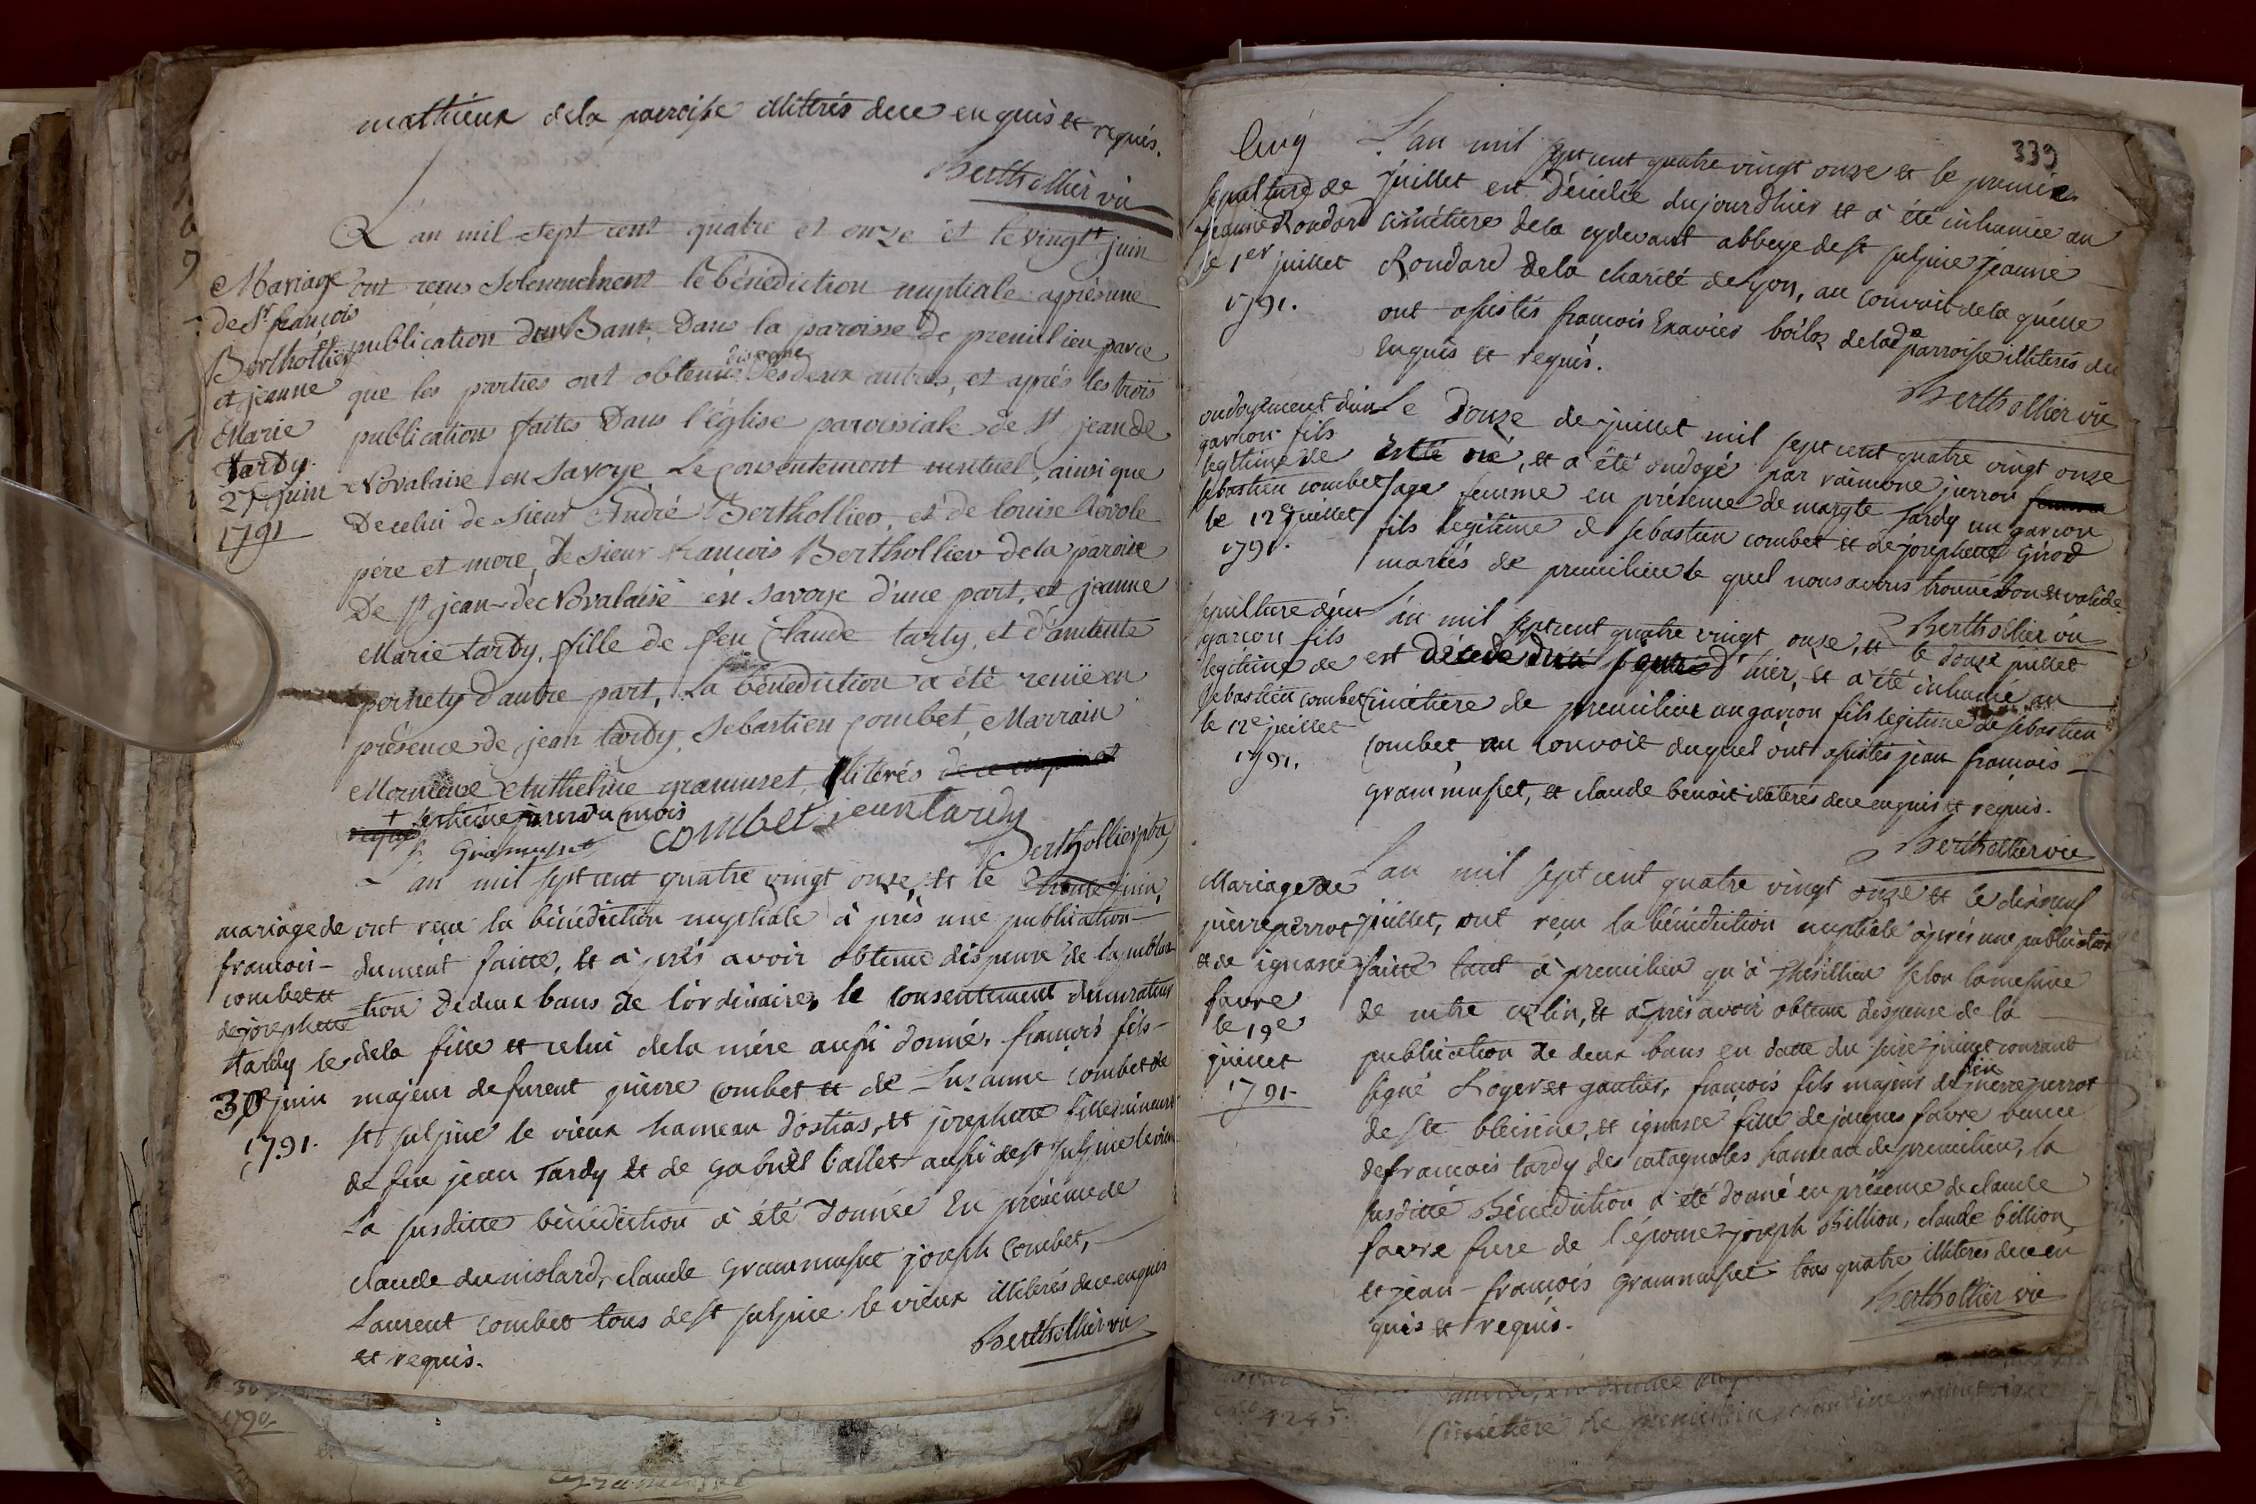 mathieux dela parroisse illiterés dece enquis et requis.
Berthollier vic
L'an mil sept cent quatre et onze et le vingt juin
Mariage
de Sr françois
Berthollier
et jeanne
Marie
tardy.
27 juin
1791
ont reçus solennelment le bénédiction nuptiale après une
publication Dans la paroisse de premilieu parce
que les parties ont obtenus dispense des deux autres, et après les trois
publication faites Dans l'église paroissiale de St jean de
Novalaise en Savoye Le consentement mutuel, ainsi que
De celui de sieur André Berthollier, et de louise
père et mere, de sieur françois Berthollier de la paroise
De St jean de Novalaise en Savoye d'une part, et jeanne
Marie tardy, fille de feu Claude tardy, et d'antente
pernety d'autre part, La bénédiction a été
présence de jean tardy, Sebastien Combet, Marrain
Anthelme grammuset, illiterés
combet jean tardy
Berthollier
an mil sept cent quatre vingt onze et le trente juin
mariage de
françois
combet et
de josephette
tardy le
30e juin
1791.
ont reçu la bénédiction nuptiale à près une publication
dument faitte, et après avoir obtenue dispense de la publica
tion de deux bans de l'ordinaire, le consentement du curateur
dela fille et celui dela mére aussi donné, françois fils
majeur de furent pierre combet et de Suzanne combet de
St sulpice le vieux hameau d'ostias, et josephette fille mineure
de feu jean tardy et de gabriel ballet aussi de st sulpice le vieux
La susditte bénédiction à été donnée en présence de
claude dumolard, claude grammusset joseph combet,
Laurent combet tous de st sulpice le vieux illiterés dece enquis
et requis.
Berthollier vic
339
L'an mil sept cent quatre vingt onze et le premier
sepulture de
jeanne Rondard
le 1er juillet
1791.
juillet est décédée du jourdhier et à été inhumée au
cimétiere dela cydevant abbeye de st sulpice jeanne
Rondard de la charité de lyon, au convoit de la quelle
ont assistés françois Exavier boiloz dela de parroisse illiterés de
enquis et requis.
Berthollier vic
ondoyement d'un
garçon fils
legitime de
sebastien combet
le 12e juillet
1791.
Le douze de juillet mil sept cent quatre vingt onze
est né, et a été ondoyé par raimone jurron
sage femme en présence de margte tardy un garçon
fils legitime de sebastien combet et de josephette girod
mariés de premilieu le quel nous avons trouvé bon et valide
Berthollier vic
sepulture d'un
garçon fils
legitime de
sebastien combet
le 12e juillet
1791.
L'an mil sept cent quatre vingt onze, et le douze juillet
est décédé d'hier, et a été inhumé au
cimétiere de premilieu un garçon fils legitime de sebastien
combet, au convoit duquel ont assistés jean françois
grammusset, et claude benoit illiterés dece enquis et requis.
Berthollier vic
Mariage de
pierre perrot
et de ignasce
favre
le 19e
juillet
1791
L'an mil sept cent quatre vingt onze et le dixneuf
juillet, ont reçu la bénédiction nuptiale après une publication
faitte tant à premilieu qu'à thesillieu selon
de et après avoir obtenue dispense de la
publication de deux bans en datte du seize juillet courant
signé Royer et gautier, françois fils majeur de feu pierre perrot
de ste bleisine, et ignasce fille de jacques favre veuve
de francois tardy des catagnoles hameau de premilieu, la
susditte Bénédiction à été donné en présence de claude
favre frere de l'épouse joseph billion, claude billion
et jean-françois grammusset tous quatre illiteres dece en
quis et requis.
Berthollier vic
1790
cimétiere de premilieu